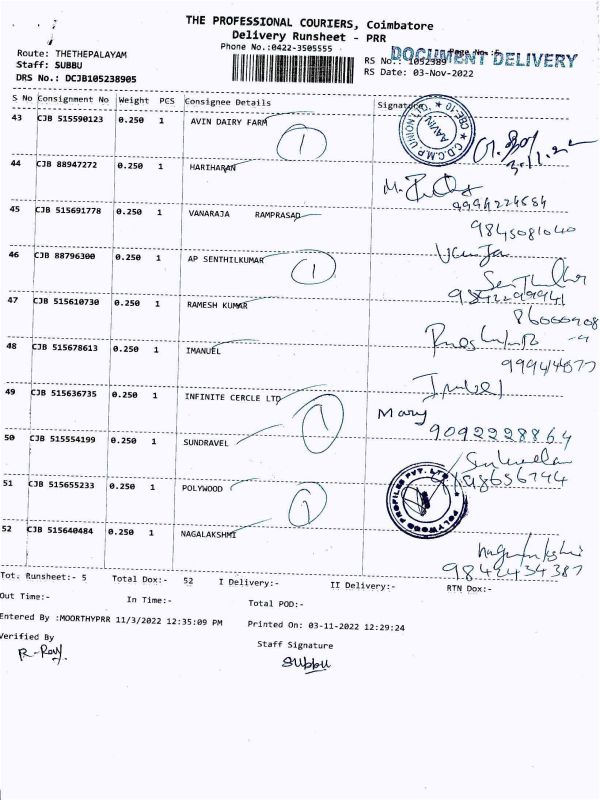 THE PROFESSIONAL COURIERS, Coimbatore
Delivery Runsheet - PRR
Phone No.:0422-3505555
DOCUMENT DELIVERY
Route: THETHEPALAYAM
Staff: SUBBU
DRS No.: DCJB105238905
RS No.: 1052389
RS Date: 03-Nov-2022
S No Consignment No Weight PCS Consignee Details Signature
43 CJB 515590123 0.250 1 AVIN DAIRY FARM 1
C.D.C.M.P. UNION LTD CBE-10 AAVIN
3.11.22
44 CJB 88947272 0.250 1 HARIHARAN
9994224684
45 CJB 515691778 0.250 1 VANARAJA RAMPRASAD
9845081040
46 CJB 88796300 0.250 1 AP SENTHILKUMAR 1
47 CJB 515610730 0.250 1 RAMESH KUMAR
48 CJB 515678613 0.250 1 IMANUEL
49 CJB 515636735 0.250 1 INFINITE CERCLE LTD 1
Mary
9092228864
50 CJB 515554199 0.250 1 SUNDRAVEL
51 CJB 515655233 0.250 1 POLYWOOD 1
POLYWOOD PROFILES PVT. LTD
52 CJB 515640484 0.250 1 NAGALAKSHMI
9842434387
Tot. Runsheet:- 5 Total Dox:- 52 I Delivery:- II Delivery:- RTN Dox:-
Out Time:- In Time:- Total POD:-
Entered By :MOORTHYPRR 11/3/2022 12:35:09 PM Printed On: 03-11-2022 12:29:24
Verified By Staff Signature
Subbu